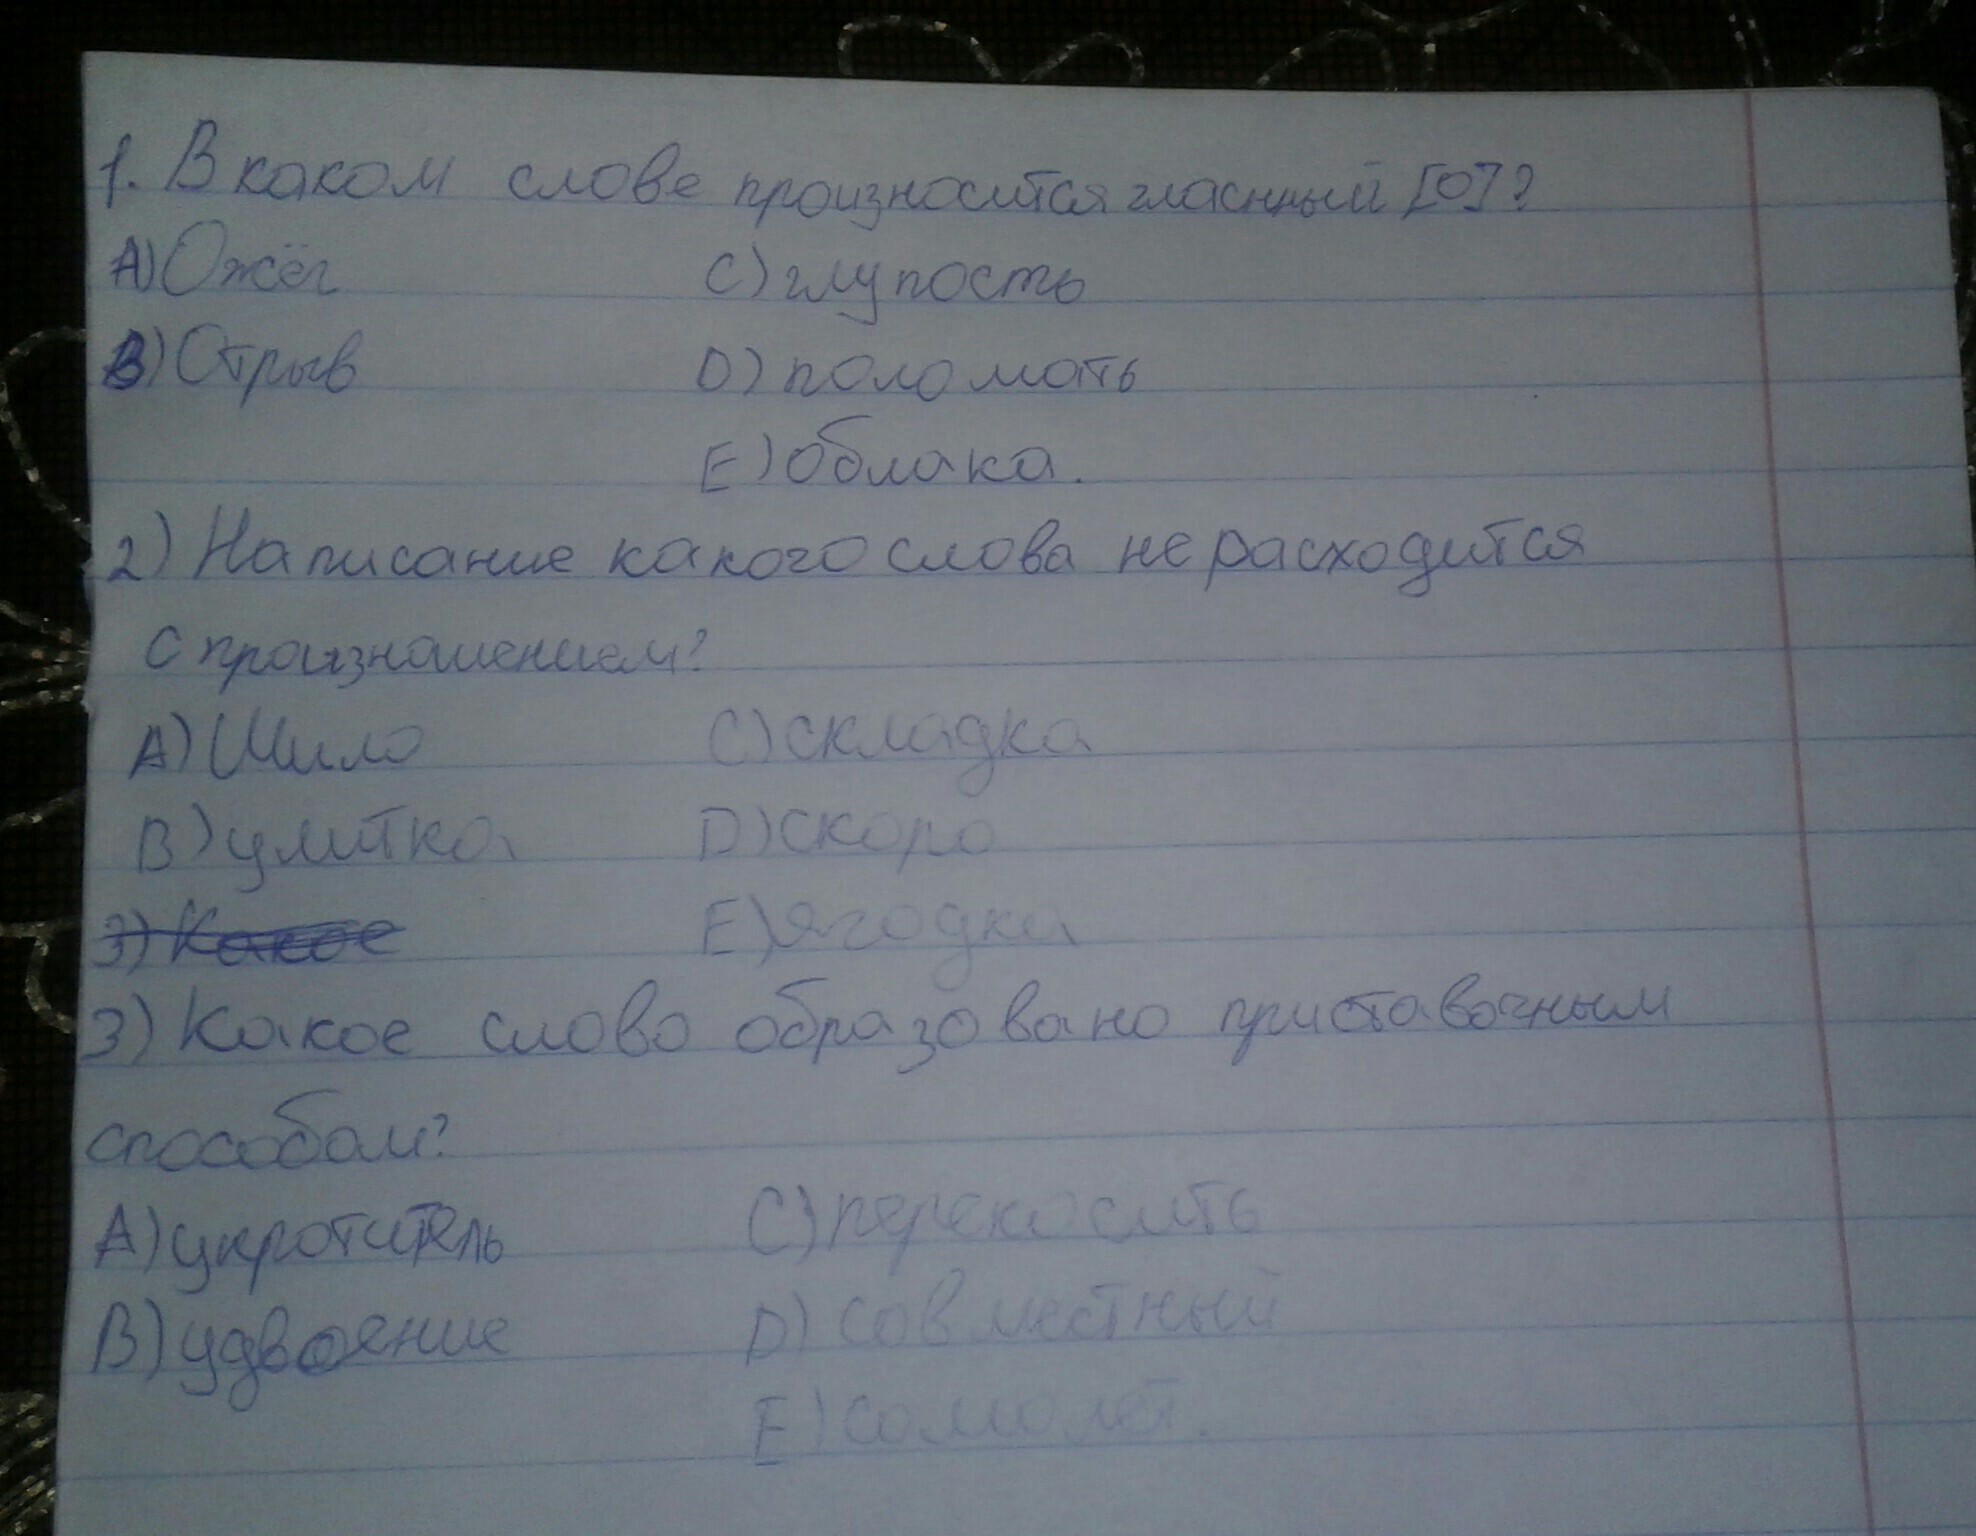 1. В каком слове произносится гласный [О]?
А) Ожёг C) глупость
В) Отрыв D) поломать
E) облака.
2) Написание какого слова не расходится
с произношением?
А) Шило C) складка
В) улитка D) скоро
3) Какое E) ягодка
3) Какое слово образовано приставочным
способом?
А) укротитель C) перекосить
В) удвоение D) совместный
E) самолет.